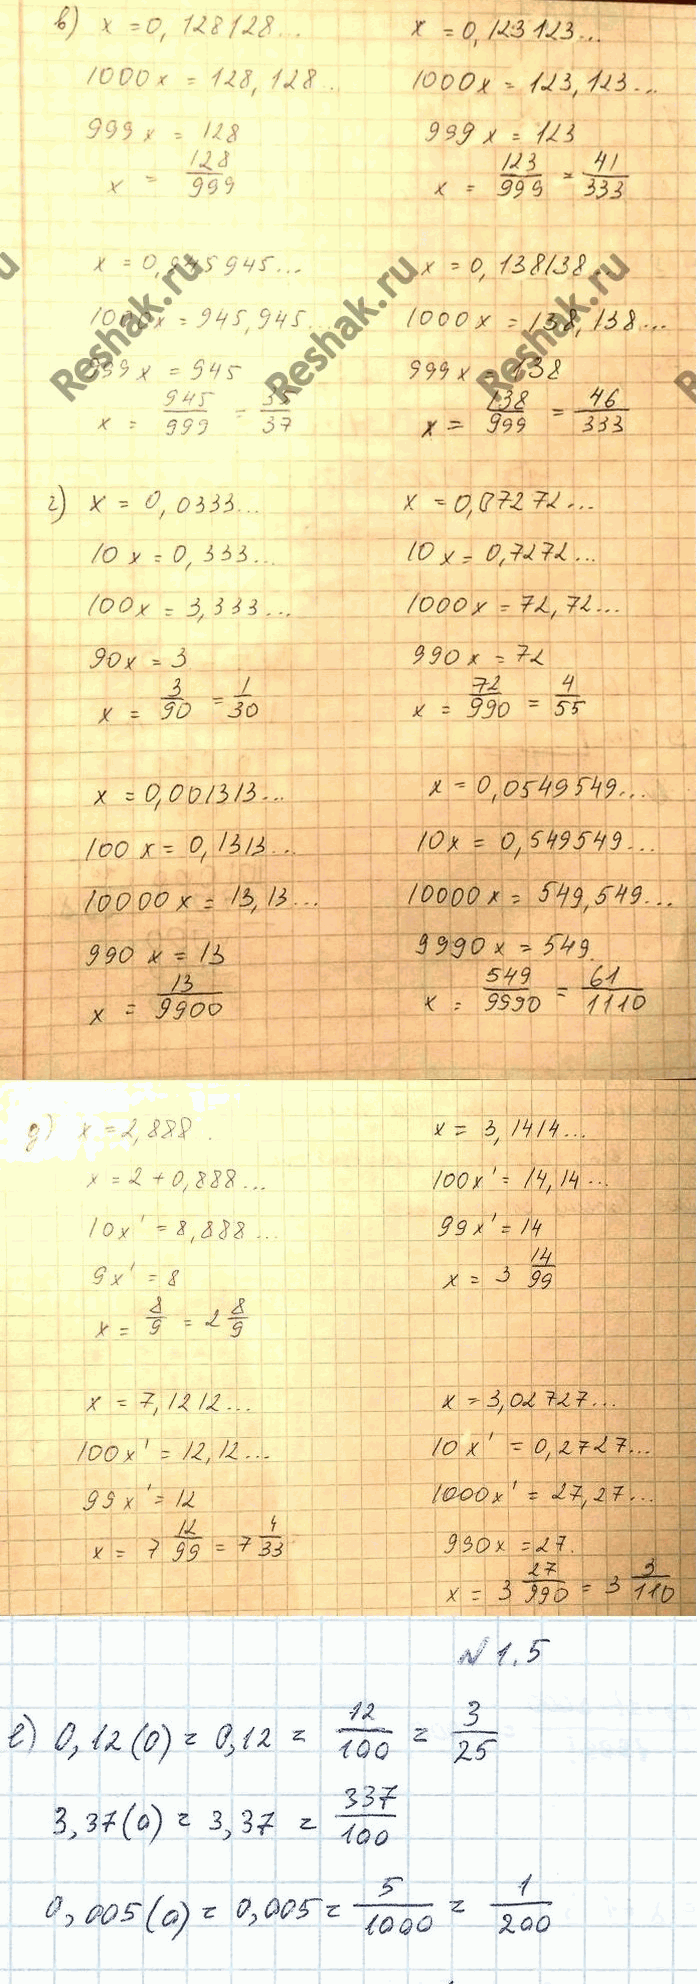 в) x = 0,128128... x = 0,123123...
1000x = 128,128... 1000x = 123,123...
999x = 128 999x = 123
x = 128/999 x = 123/999 = 41/333
x = 0,945945... x = 0,138138...
1000x = 945,945... 1000x = 138,138...
999x = 945 999x = 138
x = 945/999 = 35/37 x = 138/999 = 46/333
Reshak.ru Reshak.ru Reshak.ru
г) x = 0,0333... x = 0,07272...
10x = 0,333... 10x = 0,7272...
100x = 3,333... 1000x = 72,72...
90x = 3 990x = 72
x = 3/90 = 1/30 x = 72/990 = 4/55
x = 0,001313... x = 0,0549549...
100x = 0,1313... 10x = 0,549549...
10000x = 13,13... 10000x = 549,549...
990x = 13 9990x = 549
x = 13/9900 x = 549/9990 = 61/1110
д) x = 2,888. x = 3,1414...
x = 2 + 0,888... 100x' = 14,14...
10x' = 8,888... 99x' = 14
9x' = 8 x = 3 14/99
x = 8/9 = 2 8/9
x = 7,1212... x = 3,02727...
100x' = 12,12... 10x' = 0,2727...
99x' = 12 1000x' = 27,27...
x = 7 12/99 = 7 4/33 990x = 27.
x = 3 27/990 = 3 3/110
N 1.5
е) 0,12(0) = 0,12 = 12/100 = 3/25
3,37(0) = 3,37 = 337/100
0,005(0) = 0,005 = 5/1000 = 1/200